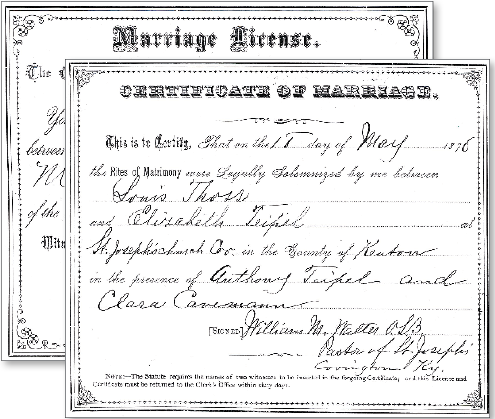 Marriage License.
The
CERTIFICATE OF MARRIAGE.
This is to Certify, That on the 1st day of May 1876
the Rites of Matrimony were Legally Solemnized by me between
Louis Thoss
and Elisabeth Teipel at
St. Joseph's church Co. in the County of Kenton
in the presence of Anthony Teipel and
Clara
[SIGNED] William M. Walter O.S.B.
Pastor of St. Joseph's
Covington Ky.
NOTE—The Statute requires the names of two witnesses to be inserted in the forgoing Certificate, and this License and
Certificate must be returned to the Clerk's Office within sixty days.
between
of the